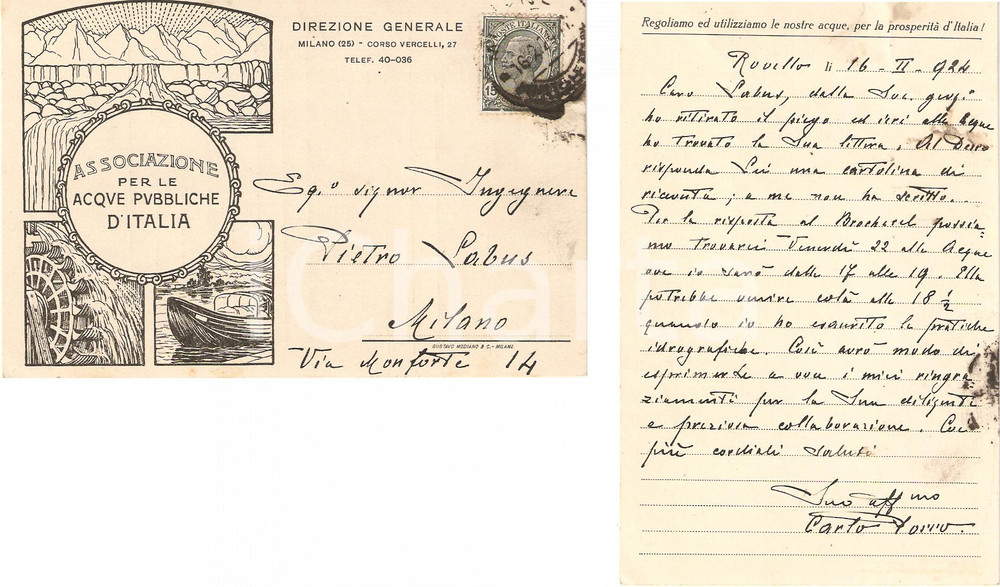 DIREZIONE GENERALE
MILANO (25) - CORSO VERCELLI, 27
TELEF. 40-036
15
ASSOCIAZIONE
PER LE
ACQVE PVBBLICHE
D'ITALIA
Eg.º Signor Ingegnere
Pietro Labus
Milano
GUSTAVO MODIANO & C. - MILANO
Via Monforte 14
Regoliamo ed utilizziamo le nostre acque, per la prosperità d'Italia!
Rovello li 16 - II - 924
Caro Labus, dalla Soc.
ho ritirato il piego ed ieri alle Acque
ho trovato la Sua lettera. Al
risponda Lei una cartolina di
ricevuta; a me non ha scritto.
Per la risposta al Brocherel possia-
mo trovarci Venerdì 22 alle Acque
ove io sarò dalle 17 alle 19. Ella
potrebbe venire colà alle 18 ½
quando io ho esaurito le pratiche
idrografiche. Così avrò modo di
esprimerLe a voce i miei ringra-
ziamenti per la Sua diligente
e preziosa collaborazione. Coi
più cordiali saluti
Suo aff mo
Carlo Porro.